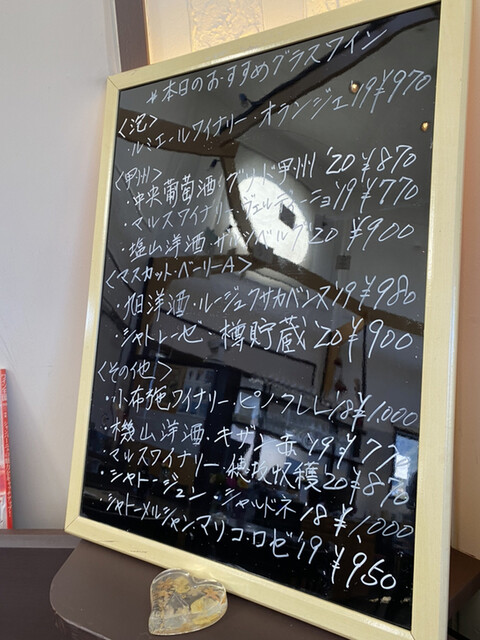 #本日のおすすめグラスワイン
<泡>
・ルミエールワイナリー・オランジェ'19 ¥970
<甲州>
・中央葡萄酒・グリド甲州 '20 ¥870
・マルスワイナリー・ヴェルディーニョ'19 ¥770
・塩山洋酒・ザテンベルグ'20 ¥900
<マスカット・ベーリーA>
・旭洋酒・ルージュクサカベンヌ'19 ¥980
・シャトレーゼ 樽貯蔵 '20 ¥900
<その他>
・小布施ワイナリー・ピノ 18 ¥1,000
・機山洋酒・キザン赤 '19 ¥77
・マルスワイナリー・穂坂収穫 20 ¥870
・シャトー・ジュン・シャルドネ '18 ¥1,000
・シャトーメルシャン・マリコ・ロゼ'19 ¥950